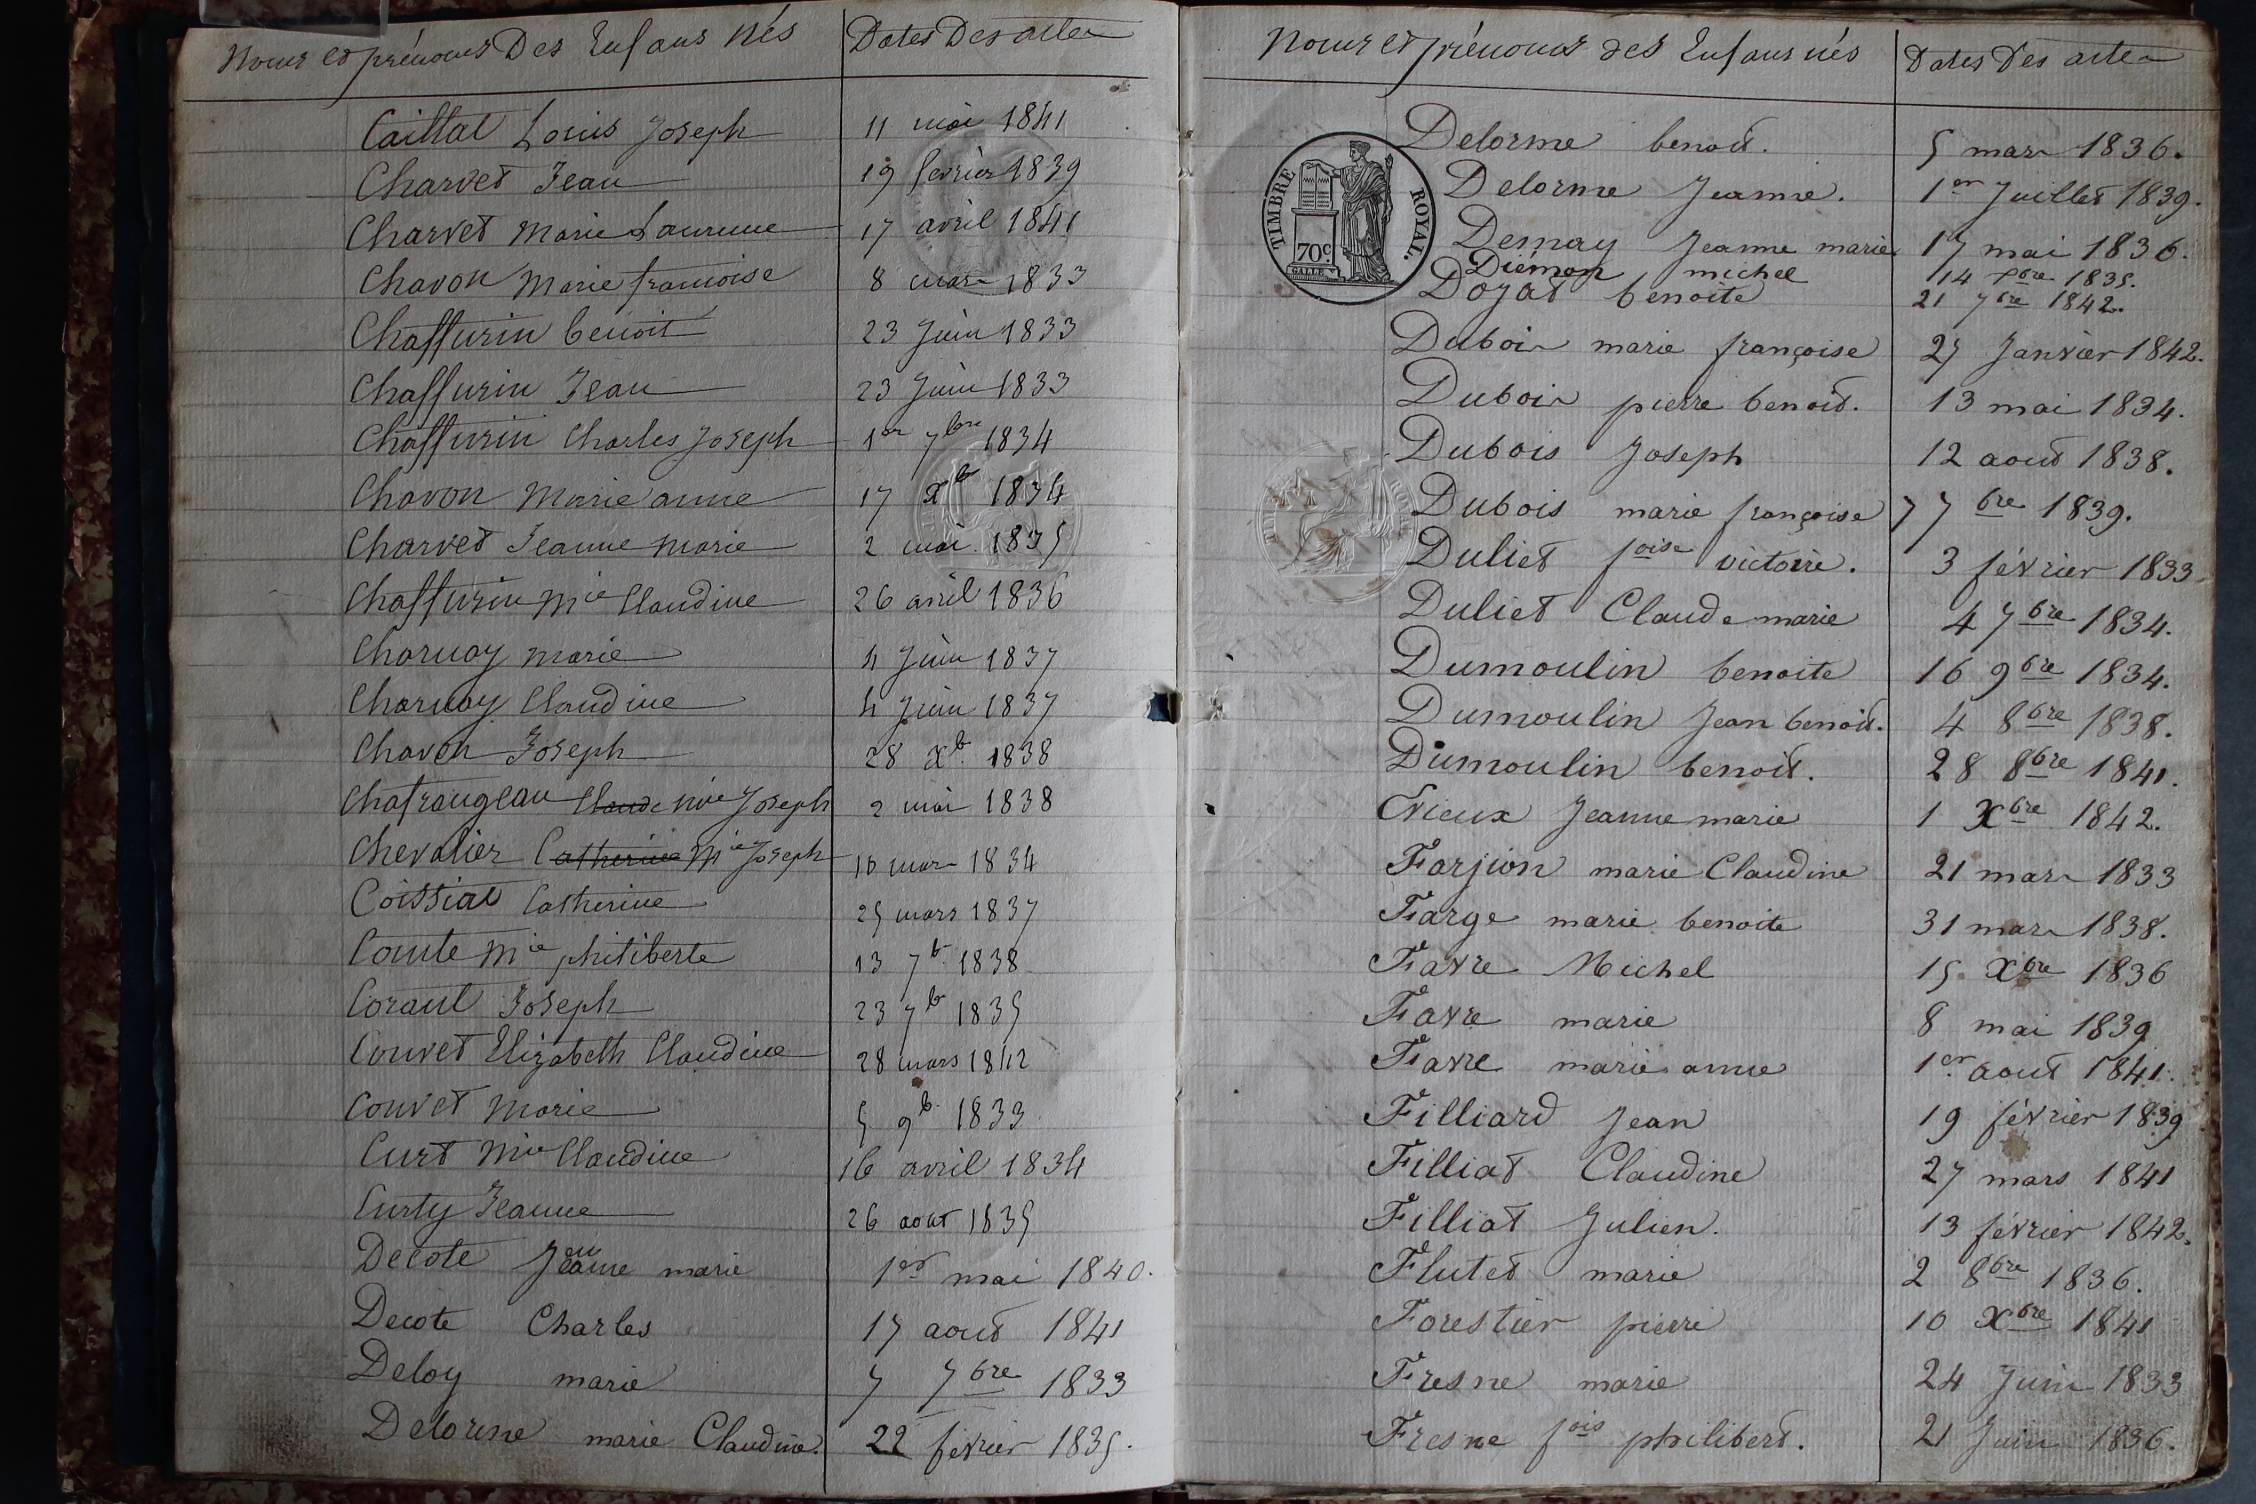 Noms et prénoms Des Enfans Nés Dates Des actes
Caillat Louis Joseph 11 mai 1841
Charvet Jean 19 fevrier 1839
Charvet Marie Laurence 17 avril 1841
Chavon Marie françoise 8 mars 1833
Chaffurin benoit 23 Juin 1833
Chaffurin Jean 23 Juin 1833
Chaffurin Charles Joseph 1er 7bre 1834
Chavon Marie anne 17 xb 1834
Charvet Jeanne Marie 2 mai 1835
Chaffurin Mie Claudine 26 avril 1836
Charnay Marie 4 Juin 1837
Charnay Claudine 4 Juin 1837
Chavon Joseph 28 xb. 1838
Chatrangeau Claude Mie Joseph 2 mai 1838
Chevalier Catherine Mie Joseph mars 1834
Coissiat Catherine 25 mars 1837
Comte Mie philiberte 13 7b. 1838
Coraul Joseph 23 7b 1835
Couvet Elizabeth Claudine 28 mars 1842
Couvet Marie 5 9b. 1833
Curt Mie Claudine 16 avril 1834
Curty Jeanne 26 août 1835
Decote Jeanne marie 1er mai 1840.
Decote Charles 17 aout 1841
Deloy marie 7 7bre 1833
Delorme marie Claudine. 22 fevrier 1835.
Noms et prénoms des Enfans nés Dates Des actes
TIMBRE ROYAL.
70c.
GALLE
Delorme benoit. 5 mars 1836.
Delorme Jeanne. 1er Juillet 1839.
Demay Jeanne marie 17 mai 1836.
Diémon michel 14 xbre 1835.
Doyat benoite 21 7bre 1842.
Dubois marie françoise 27 Janvier 1842.
Dubois pierre benoit. 13 mai 1834.
Dubois Joseph 12 aout 1838.
Dubois marie françoise 7 7bre 1839.
Duliet foise victoire. 3 février 1833
Duliet Claude marie 4 7bre 1834.
Dumoulin benoite 16 9bre 1834.
Dumoulin Jean benoit. 4 8bre 1838.
Dumoulin benoit. 28 8bre 1841.
Evieux Jeanne marie 1 Xbre 1842.
Farjion marie Claudine 21 mars 1833
Farge marie benoite 31 mars 1838.
Favre Michel 15 xbre 1836
Favre marie 8 mai 1839
Favre marie anne 1er aout 1841.
Filliard Jean 19 février 1839
Filliat Claudine 27 mars 1841
Filliat Julien. 13 février 1842.
Flutet marie 2 8bre 1836.
Forestier pierre 10 xbre 1841
Fresne marie 24 Juin 1833
Fresne fois philibert. 21 Juin 1836.